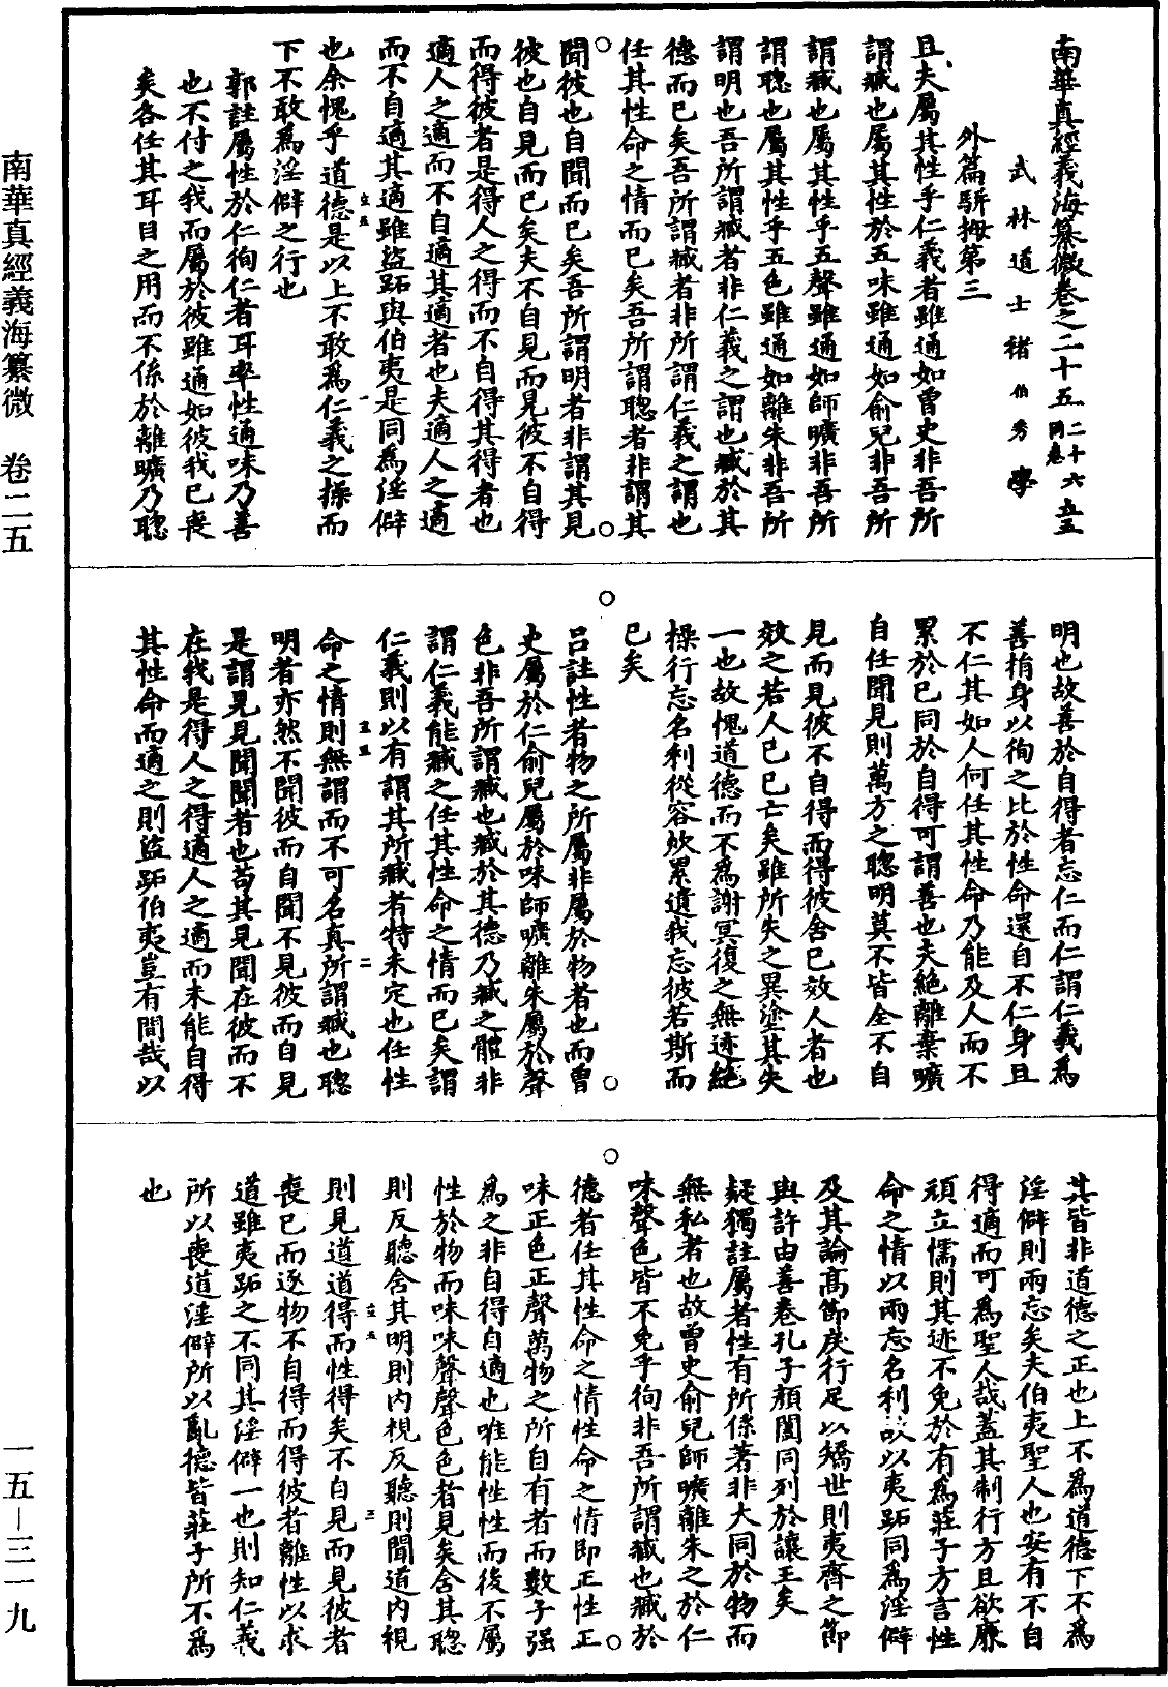 南華真經義海纂微卷之二十五 二十六同卷 五五
武林道士褚伯秀學
外篇駢拇第三
且夫屬其性乎仁義者雖通如曾史非吾所
謂臧也屬其性於五味雖通如俞兒非吾所
謂臧也屬其性乎五聲雖通如師曠非吾所
謂聰也屬其性乎五色雖通如離朱非吾所
謂明也吾所謂臧者非仁義之謂也臧於其
德而已矣吾所謂臧者非所謂仁義之謂也
任其性命之情而已矣吾所謂聰者非謂其
聞彼也自聞而已矣吾所謂明者非謂其見
彼也自見而已矣夫不自見而見彼不自得
而得彼者是得人之得而不自得其得者也
適人之適而不自適其適者也夫適人之適
而不自適其適雖盜跖與伯夷是同為淫僻
也余愧乎道德是以上不敢為仁義之操而
下不敢為淫僻之行也
郭註屬性於仁徇仁者耳率性通味乃善
也不付之我而屬於彼雖通如彼我已喪
矣各任其耳目之用而不係於離曠乃聰
明也故善於自得者忘仁而仁謂仁義為
善捐身以徇之比於性命還自不仁身且
不仁其如人何任其性命乃能及人而不
累於己同於自得可謂善也夫絕離棄曠
自任聞見則萬方之聰明莫不皆全不自
見而見彼不自得而得彼舍已效人者也
效之若人已已亡矣雖所失之異塗其失
一也故愧道德而不為謝冥復之無迹絕
操行忘名利從容炊累遺我忘彼若斯而
已矣
呂註性者物之所屬非屬於物者也而曾
史屬於仁俞兒屬於味師曠離朱屬於聲
色非吾所謂臧也臧於其德乃臧之體非
謂仁義能臧之任其性命之情而已矣謂
仁義則以有謂其所臧者特未定也任性
命之情則無謂而不可名真所謂臧也聰
明者亦然不聞彼而自聞不見彼而自見
是謂見見聞聞者也苟其見聞在彼而不
在我是得人之得適人之適而未能自得
其性命而適之則盜跖伯夷豈有間哉以
其皆非道德之正也上不為道德下不為
淫僻則兩忘矣夫伯夷聖人也安有不自
得適而可為聖人哉蓋其制行方且欲廉
頑立懦則其迹不免於有為莊子方言性
命之情以兩忘名利故以夷跖同為淫僻
及其論高節戾行足以矯世則夷齊之節
與許由善卷孔子顏闔同列於讓王矣
疑獨註屬者性有所係著非大同於物而
無私者也故曾史俞兒師曠離朱之於仁
味聲色皆不免乎徇非吾所謂臧也臧於
德者任其性命之情性命之情即正性正
味正色正聲萬物之所自有者而數子強
為之非自得自適也唯能性性而後不屬
性於物而味味聲聲色色者見矣舍其聰
則反聽舍其明則內視反聽則聞道內視
則見道道得而性得矣不自見而見彼者
喪已而逐物不自得而得彼者離性以求
道雖夷跖之不同其淫僻一也則知仁義
所以喪道淫僻所以亂德皆莊子所不為
也
南華真經義海纂微 卷二五
一五—三一九